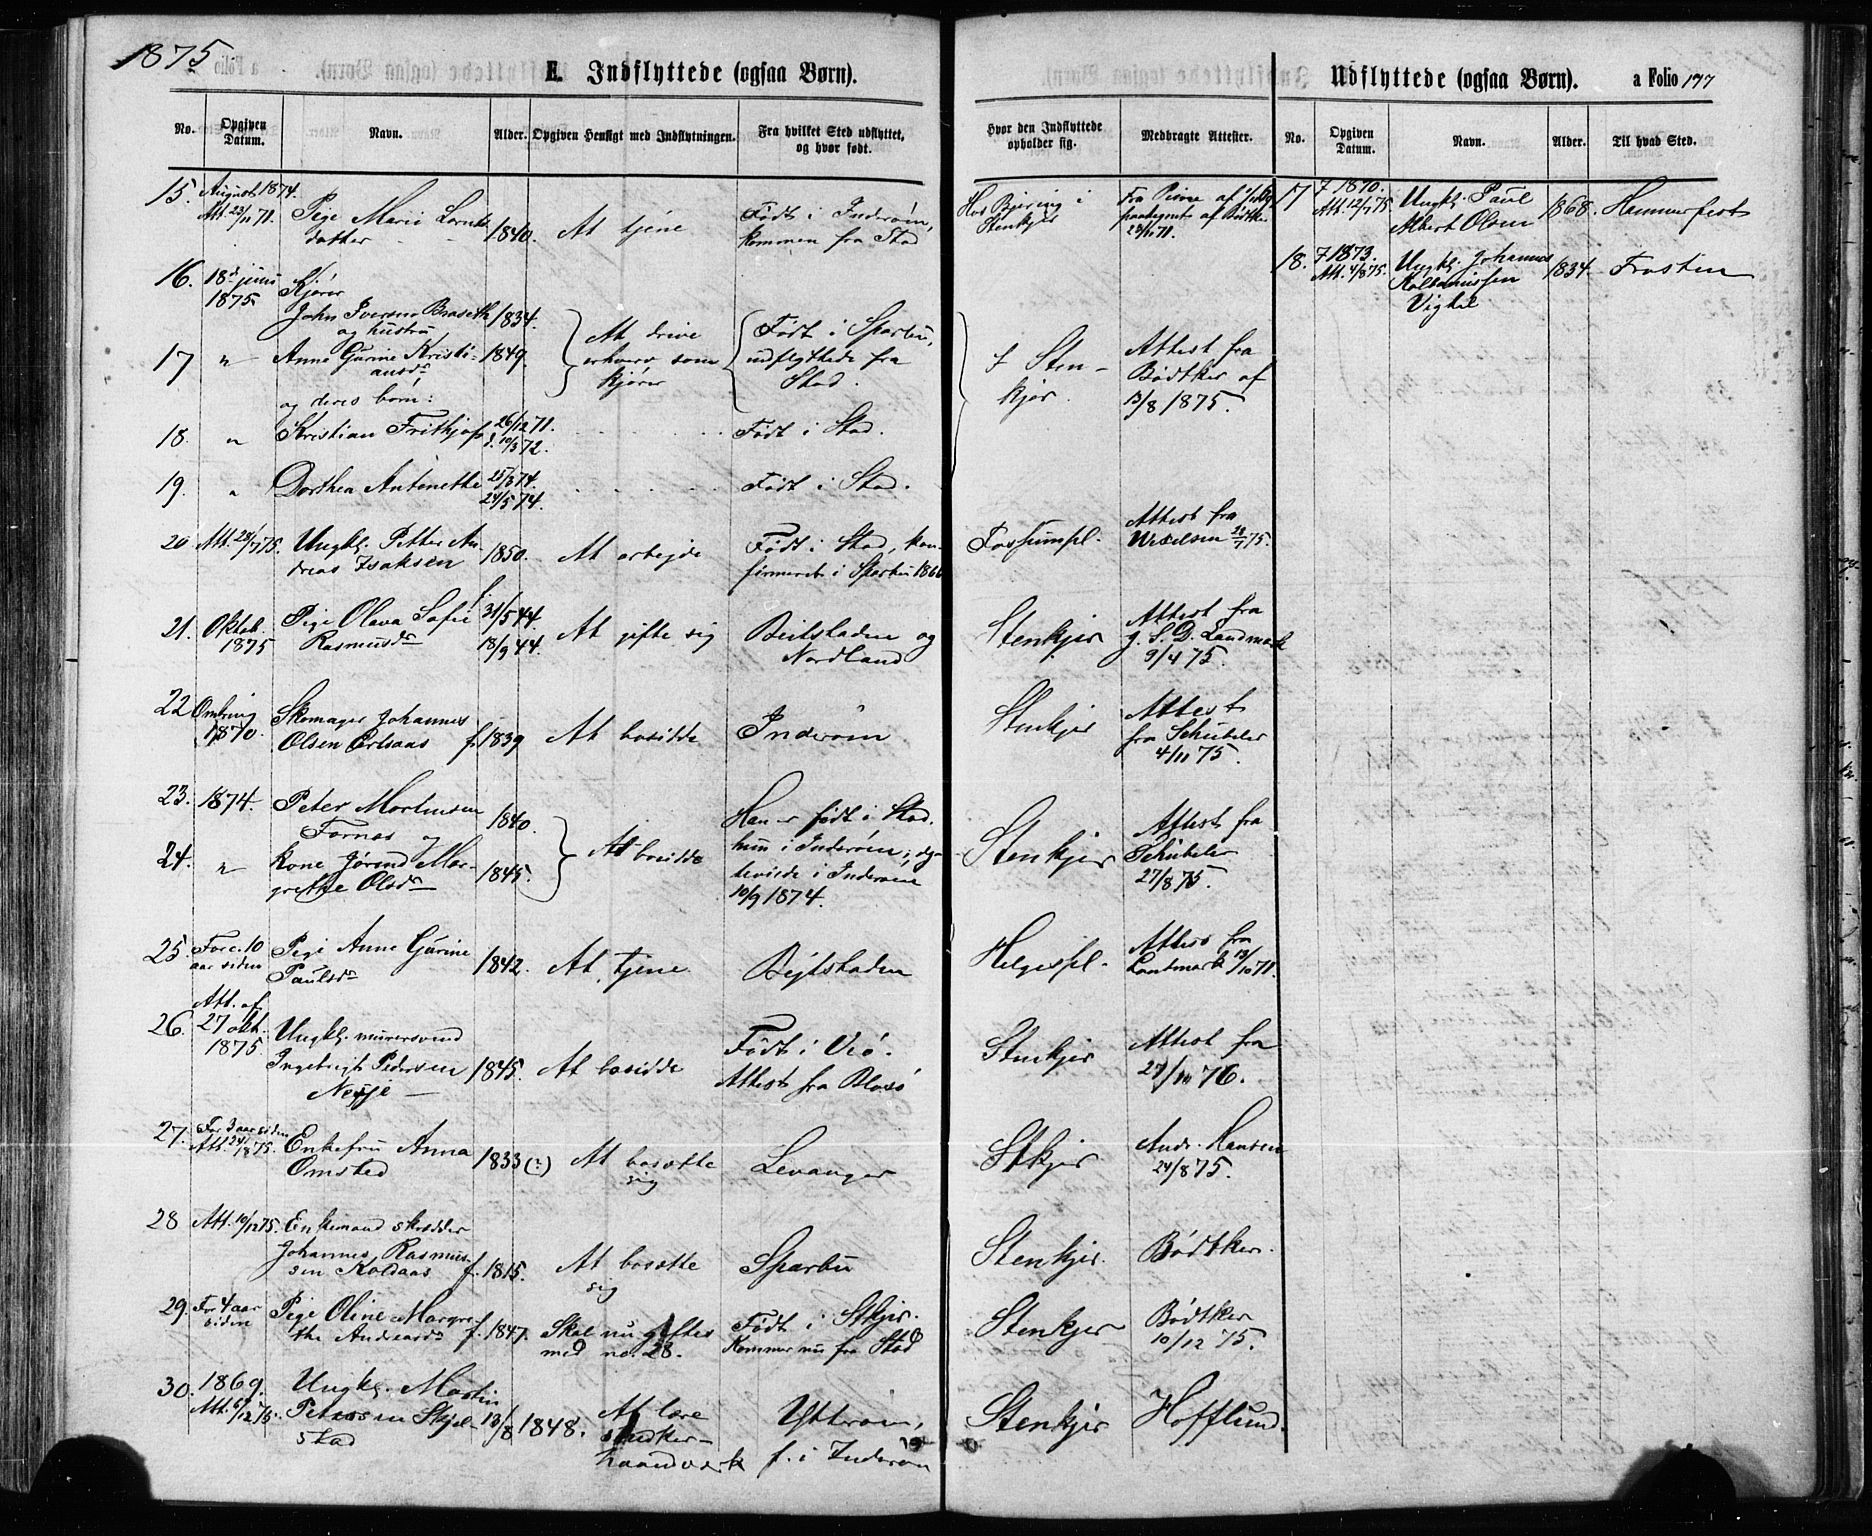 1875
E. Indflyttede (ogsaa Børn).
Udflyttede (ogsaa Børn). a Folio 177
No. Opgiven Datum. Navn. Alder. Opgiven Hensigt med Indflytningen. Fra hvilket Sted udflyttet, og hvor født. Hvor den Indflyttede opholder sig. Medbragte Attester. No. Opgiven Datum. Navn. Alder. Til hvad Sted.
15. August 1874. Att. 23/11 71. Pige Marii datter 1840. At tjene Født i Inderøen, kommen fra Stod Hos i Stenkjer Fra af paategnet af Bødtker
16. 18de juni 1875 Kjører John Iversen Braseth og hustru 1834.
17 " Anne Gurine Kristiansdr 1849. At drive erhverv som kjører Født i Sparbu, udflyttede fra Stod. I Stenkjer. Attest fra Bødtker af 13/8 1875.
og deres børn:
18. " Kristian Frithjof 26/12 71. 10/3 72. Født i Stod.
19. " Dorthea Antonette 25/3 74. 24/5 74. Født i Stod.
20 Att. 28/7 75. Ungkl. Petter Andreas Isaksen 1850. At arbejde Født i Stod, konfirmeret i Sparbu 1866 Fossumpl. Attest fra Wexelsen 28/7 75.
21. Oktob. 1875 Pige Olava Sofie Rasmusdr f. 31/5 44. 18/9 44. At gifte sig Beitstaden og Nordland Stenkjer Attest fra g. S. D. Landmark 9/4 75.
22 Omkring 1870. Skomager Johannes Olsen f. 1839 At bosidde Inderøen Stenkjer Attest fra Schübeler 4/11 75.
23. 1874. Peter Martinsen Fornes og 1840.
24. " kone Jørend Margrethe Olsdr 1845. At bosidde Han er født i Stod. hun i Inderøen; egteviede i Inderøen 10/9 1874. Stenkjer Attest fra Schübeler 27/8 75.
25. For c. 10 aar siden Pige Anne Gurine Paulsdr 1842. At tjene Bejtstaden Helgespl. Attest fra Landmark 13/10 71.
26. Att. af 27 okt. 1875. Ungkl. murersvend Ingebrigt Pedersen Nesje 1845. At bosidde Født i Veø. Attest fra Stenkjer Attest fra 76.
27. For 3 aar siden Att. 24/8 75. Enkefru Anna Omsted 1833 (?) At bosætte sig Levanger Stkjer Andr. Hansen 24/8 75.
28 Att. 10/12 75. Enkemand skrædder Johannes Rasmussen Koldaas f. 1815. At bosætte sig Sparbu Stenkjer. Bødtker.
29. For 4 aar siden Pige Oline Margrethe Andreasdr f. 1847. Skal nu giftes med no. 28. Født i Stkjer. Kommer nu fra Stod Stenkjer Bødtker 10/12 75.
30. 1869. Att. 6/12 75. Ungkl. Martin Petersen Skjelstad 13/8 1848. At lære snedkerhaandværk Ytterøen, f. i Inderøen Stenkjer Hofflund.
17 f 1870. Att. 12/7 75. Ungkl. Paul Albert Olsen 1868. Hammerfest
18. f 1873. Att. 4/8 75. Ungkl. Johannes Vigtil 1834. Frosten